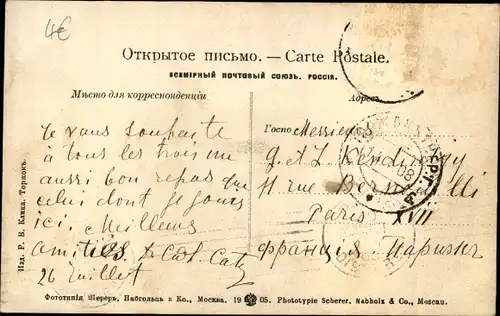 4€
Открытое письмо. — Carte Postale.
ВСЕМІРНЫЙ ПОЧТОВЫЙ СОЮЗЪ. РОССІЯ.
Мѣсто для корреспонденціи
Адресъ
Je vous souhaite
à tous les trois un
aussi bon repos que
celui dont je jouis
ici. Meilleures
amitiés
26 Juillet
Госпо Messieurs
rue Bernoulli
Paris XVII
Франція. Парижъ
08
Изд. Р. В. Клика. Торжокъ.
Фототипія Шереръ, Набгольцъ и Ко., Москва. 19 05. Phototypie Scherer, Nabholz & Co., Moscau.